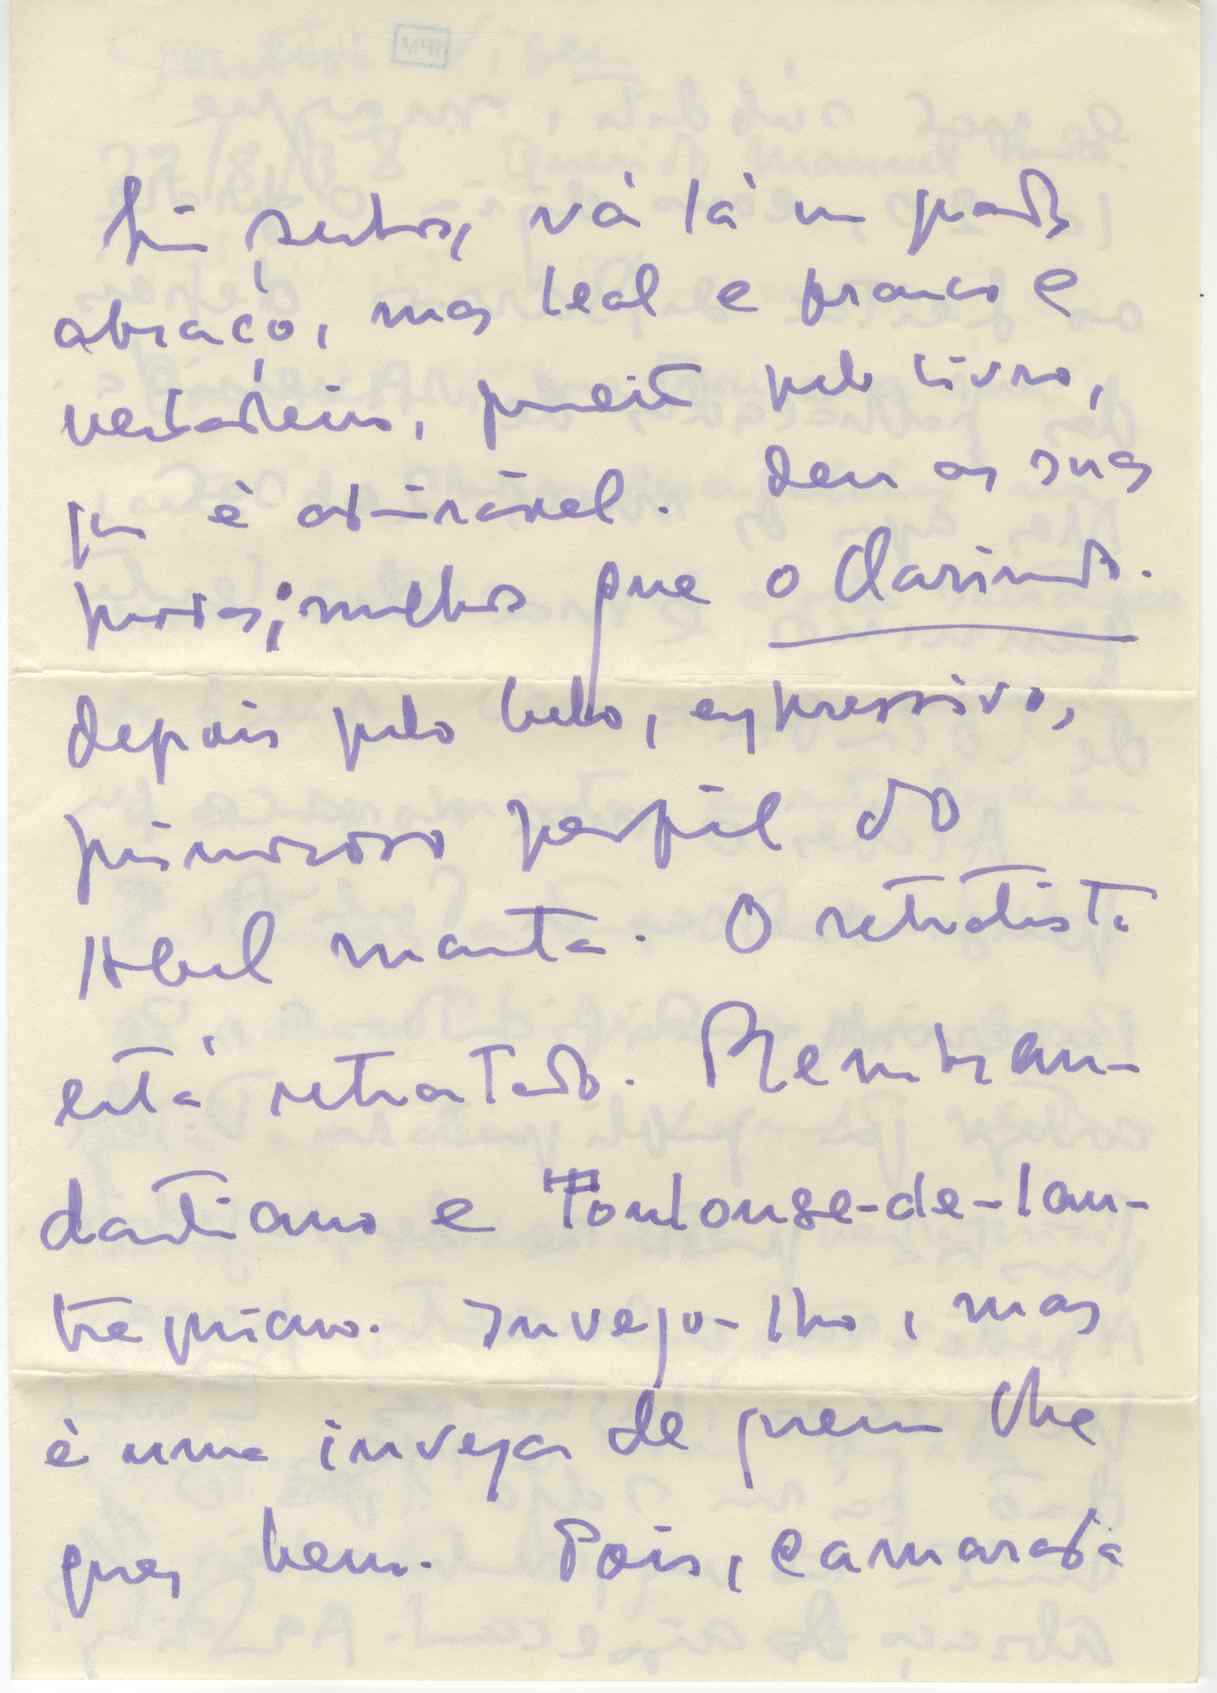 Sim senhor, vá lá um grande
abraço, mas leal e franco e
verdadeiro, primeiro pelo livro,
que é admirável. Deu as suas
provas; melhor que o Clarimundo.
depois pelo belo, expressivo,
primoroso perfil do
Abel Manta. O retratista
está retratado. Rembran-
dartiano e Toulouse-de-lau-
trequiano. Invejo-lho, mas
é uma inveja de quem lhe
quer bem. Pois, camarada